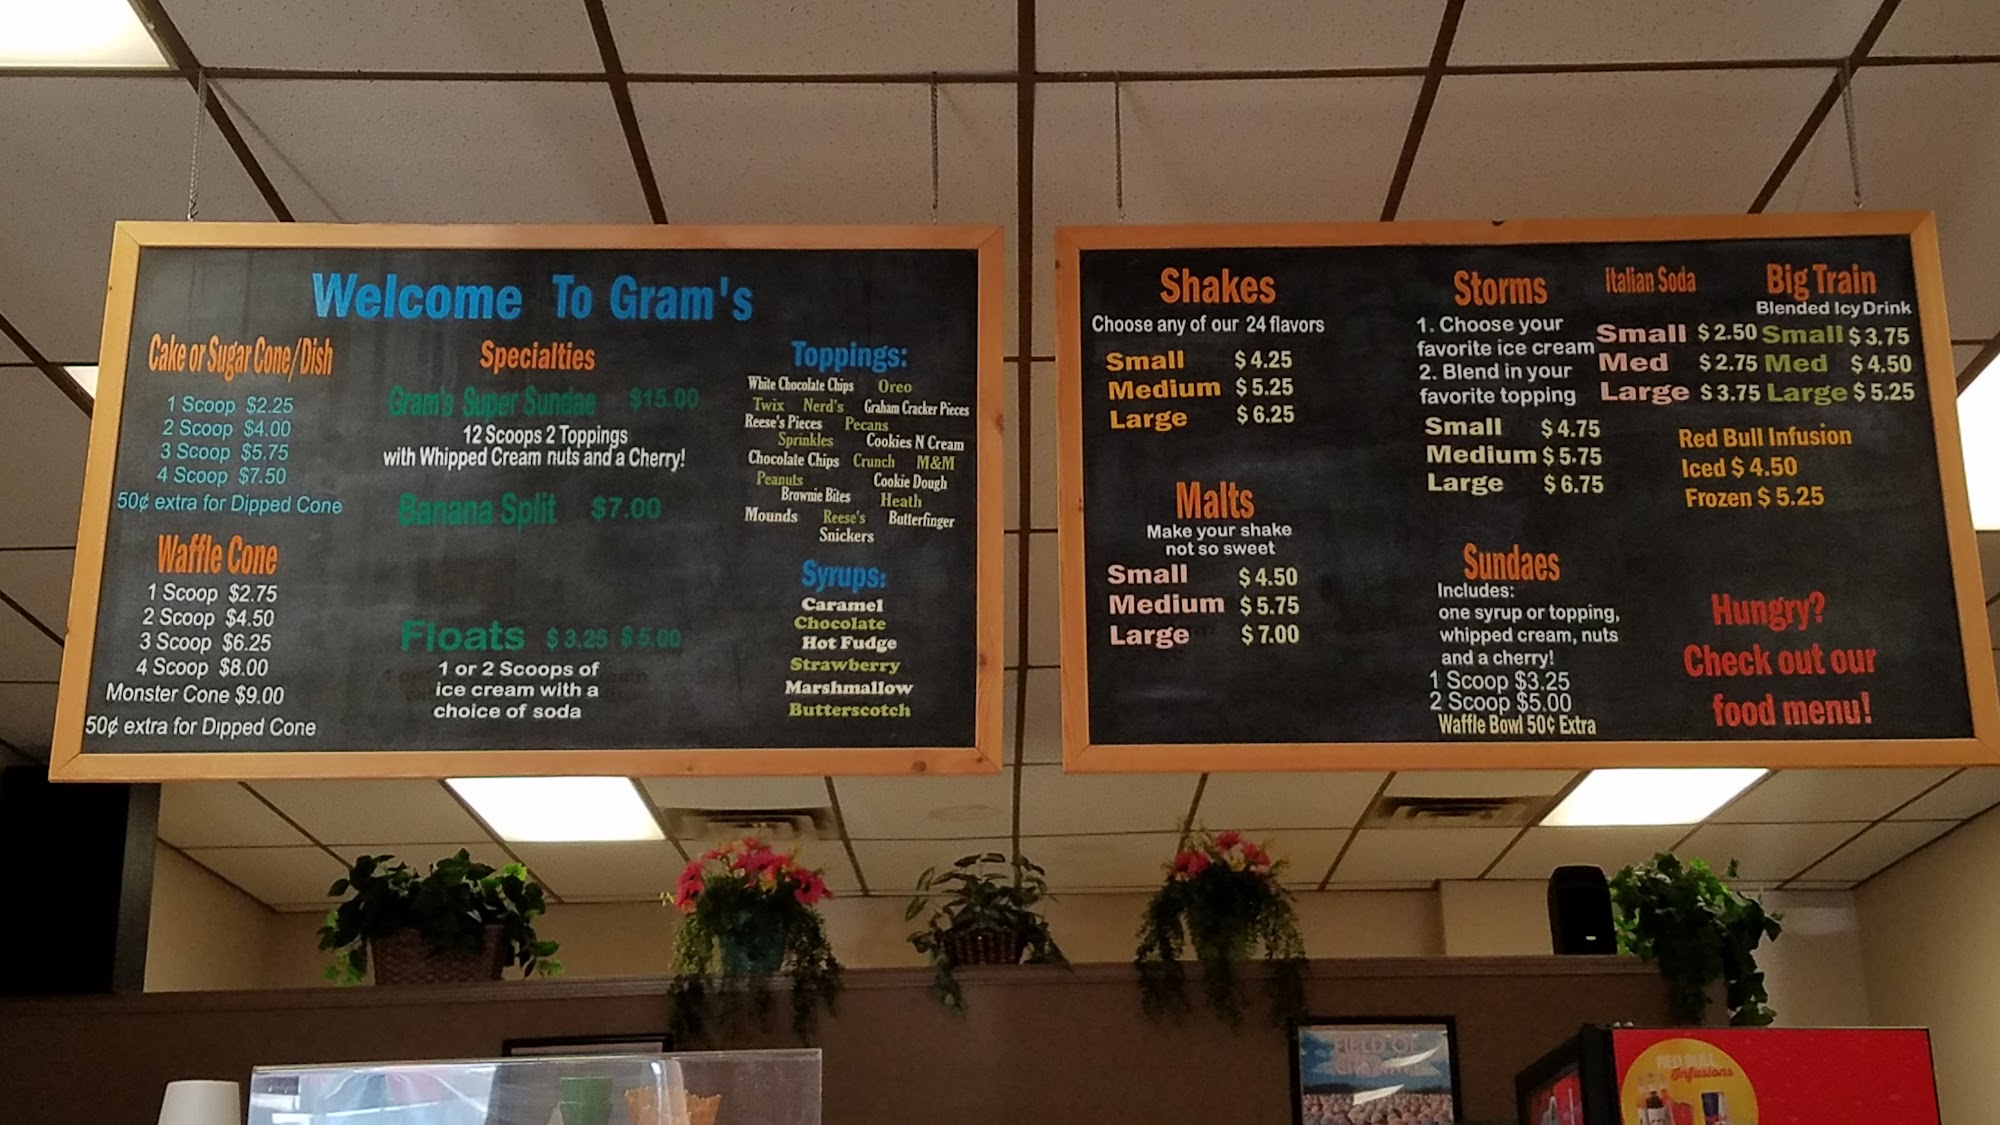 Welcome To Gram's
Cake or Sugar Cone/Dish
1 Scoop $2.25
2 Scoop $4.00
3 Scoop $5.75
4 Scoop $7.50
50¢ extra for Dipped Cone
Waffle Cone
1 Scoop $2.75
2 Scoop $4.50
3 Scoop $6.25
4 Scoop $8.00
Monster Cone $9.00
50¢ extra for Dipped Cone
Specialties
Gram's Super Sundae $15.00
12 Scoops 2 Toppings
with Whipped Cream nuts and a Cherry!
Banana Split $7.00
Floats $3.25 $5.00
1 or 2 Scoops of
ice cream with a
choice of soda
Toppings:
White Chocolate Chips Oreo
Twix Nerd's Graham Cracker Pieces
Reese's Pieces Pecans
Sprinkles Cookies N Cream
Chocolate Chips Crunch M&M
Peanuts Cookie Dough
Brownie Bites Heath
Mounds Reese's Butterfinger
Snickers
Syrups:
Caramel
Chocolate
Hot Fudge
Strawberry
Marshmallow
Butterscotch
Shakes
Choose any of our 24 flavors
Small $4.25
Medium $5.25
Large $6.25
Malts
Make your shake
not so sweet
Small $4.50
Medium $5.75
Large $7.00
Storms
1. Choose your
favorite ice cream
2. Blend in your
favorite topping
Small $4.75
Medium $5.75
Large $6.75
Sundaes
Includes:
one syrup or topping,
whipped cream, nuts
and a cherry!
1 Scoop $3.25
2 Scoop $5.00
Waffle Bowl 50¢ Extra
Italian Soda
Small $2.50
Med $2.75
Large $3.75
Big Train
Blended Icy Drink
Small $3.75
Med $4.50
Large $5.25
Red Bull Infusion
Iced $4.50
Frozen $5.25
Hungry?
Check out our
food menu!
FIELD OF
RED BULL
Infusions